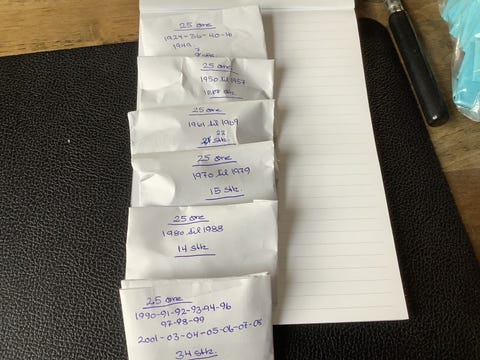 25 øre
1924-36-40-41
1949
25 øre
1950 til 1957
stk.
25 øre
1961 til 1969
22
stk.
25 øre
1970 til 1979
15 stk.
25 øre
1980 til 1988
14 stk
25 øre
1990-91-92-93-94-96
97-98-99
2001-03-04-05-06-07-08
34 stk.